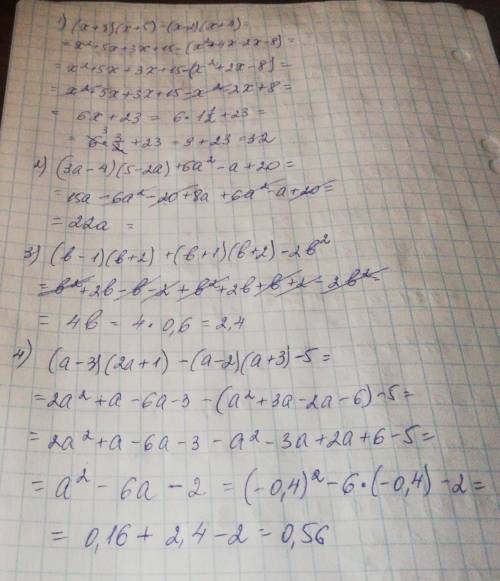 1) (x+3)(x+5)-(x-2)(x+4)=
=x²+5x+3x+15-(x²+4x-2x-8)=
=x²+5x+3x+15-(x²+2x-8)=
=x²+5x+3x+15-x²-2x+8=
= 6x+23 = 6·1½+23=
= 6·3/2+23=9+23=32
2) (3a-4)(5-2a)+6a²-a+20=
=15a-6a²-20+8a+6a²-a+20=
=22a =
3) (b-1)(b+2)+(b+1)(b+2)-2b²
=b²+2b-b-2+b²+2b+b+2-2b²=
= 4b = 4·0,6=2,4
4) (a-3)(2a+1)-(a-2)(a+3)-5=
=2a²+a-6a-3-(a²+3a-2a-6)-5=
=2a²+a-6a-3-a²-3a+2a+6-5=
=a²-6a-2=(-0,4)²-6·(-0,4)-2=
= 0,16+2,4-2=0,56